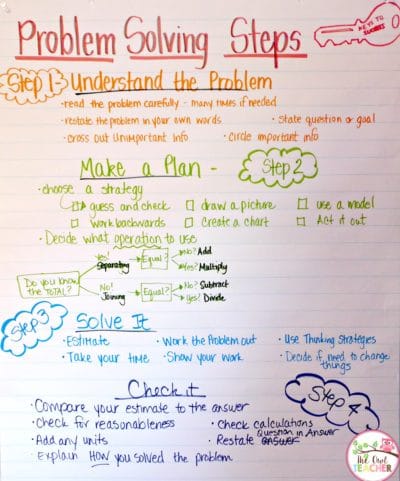 Problem Solving Steps
KEYS TO SUCCESS
Step 1 Understand the Problem
•read the problem carefully - many times if needed
•restate the problem in your own words •State question or goal
•Cross out unimportant info •Circle important info
Make a Plan - Step 2
•choose a strategy
guess and check draw a picture use a model
work backwards Create a chart Act it out
•Decide what operation to use
Do you know the TOTAL?
Yes! Separating Equal? No? Add
Yes? Multiply
No! Joining Equal? No? Subtract
Yes! Divide
Step 3 Solve It
•Estimate •Work the Problem out •Use Thinking Strategies
•Take your time •Show your work •Decide if need to change things
Check it Step 4
•Compare your estimate to the answer
•Check for reasonableness •Check calculations
•Add any units •Restate Question in Answer answer
•Explain HOW you solved the problem
the Owl TEACHER